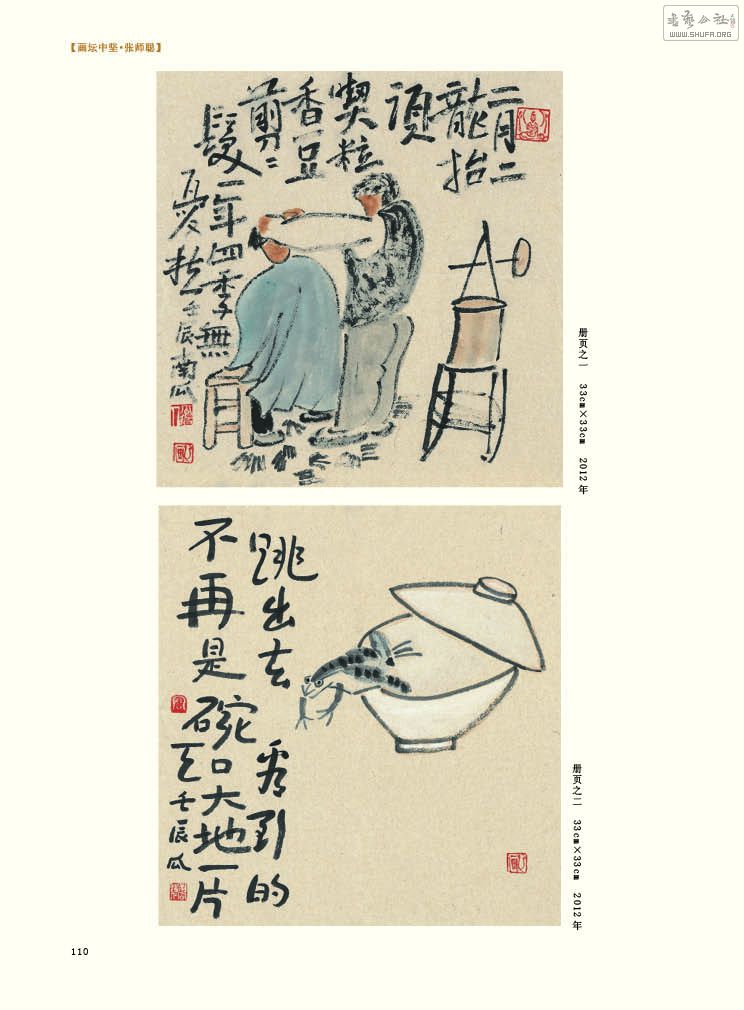 WWW.SHUFA.ORG
【画坛中坚·张师聪】
二月二
龍抬
頭
喫粒
香豆
剪〻
髮一年四季無
憂愁 壬辰南瓜
册页之一 33cm×33cm 2012年
跳出去 看到的
不再是碗口大地一片
天 壬辰 瓜
册页之二 33cm×33cm 2012年
110